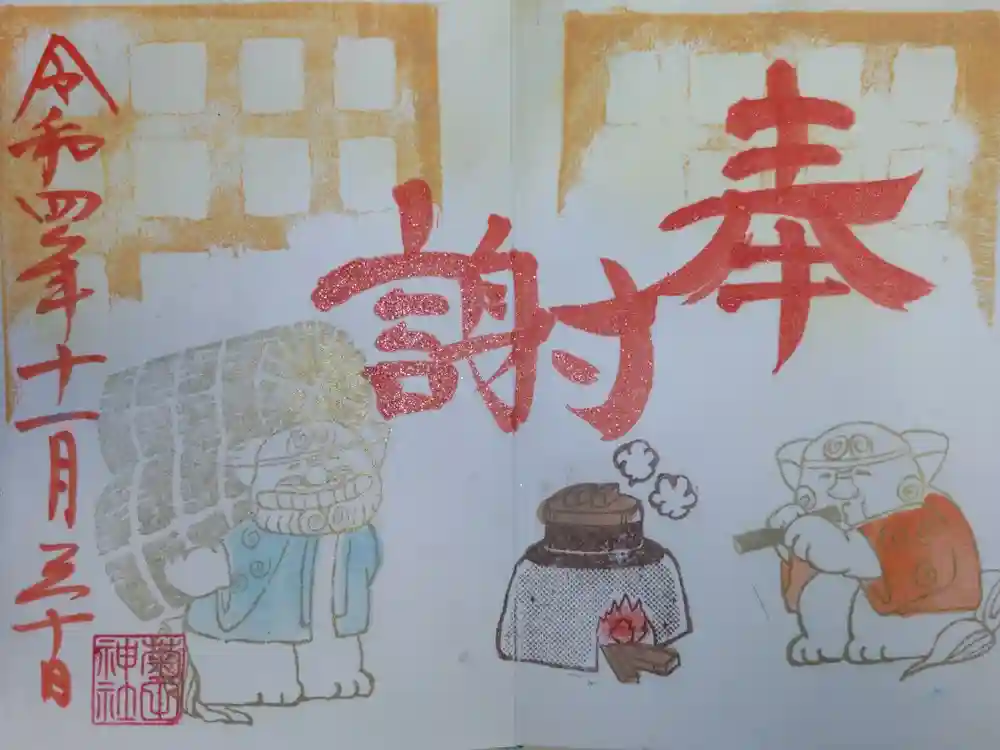 奉
謝
令和四年十一月三十日
菊田
神社